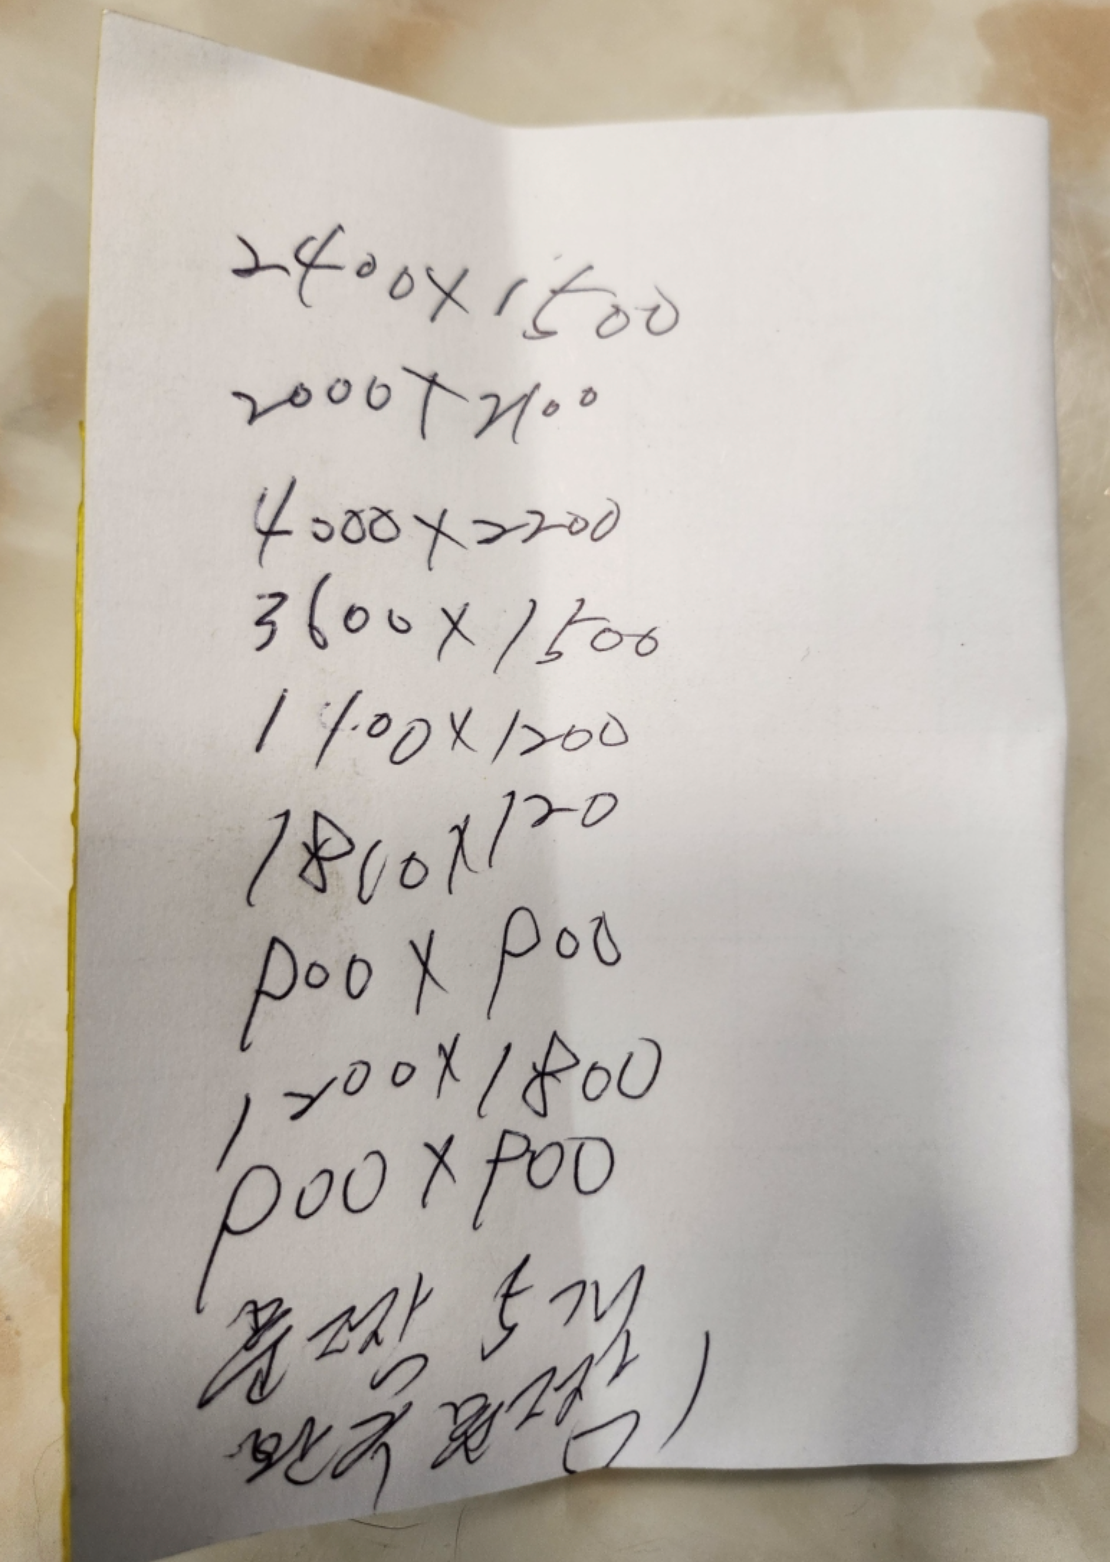 2400×1500
2000×2100
4000×2200
3600×1500
1400×1200
1800×120
900×900
1200×1800
900×900
5개
1